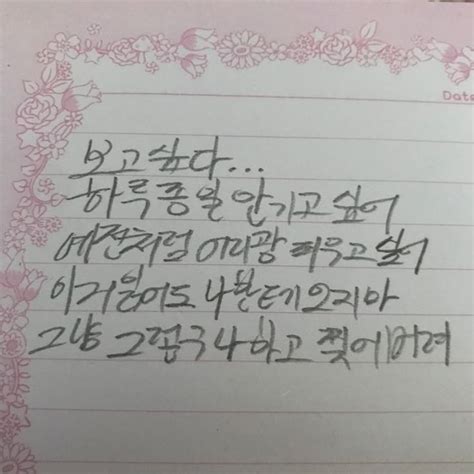 Date
보고싶다...
하루종일 안기고 싶어
예전처럼 어리광 피우고 싶어
이거 읽어도 나한테 오지마
그냥 그렇구나 하고 찢어버려